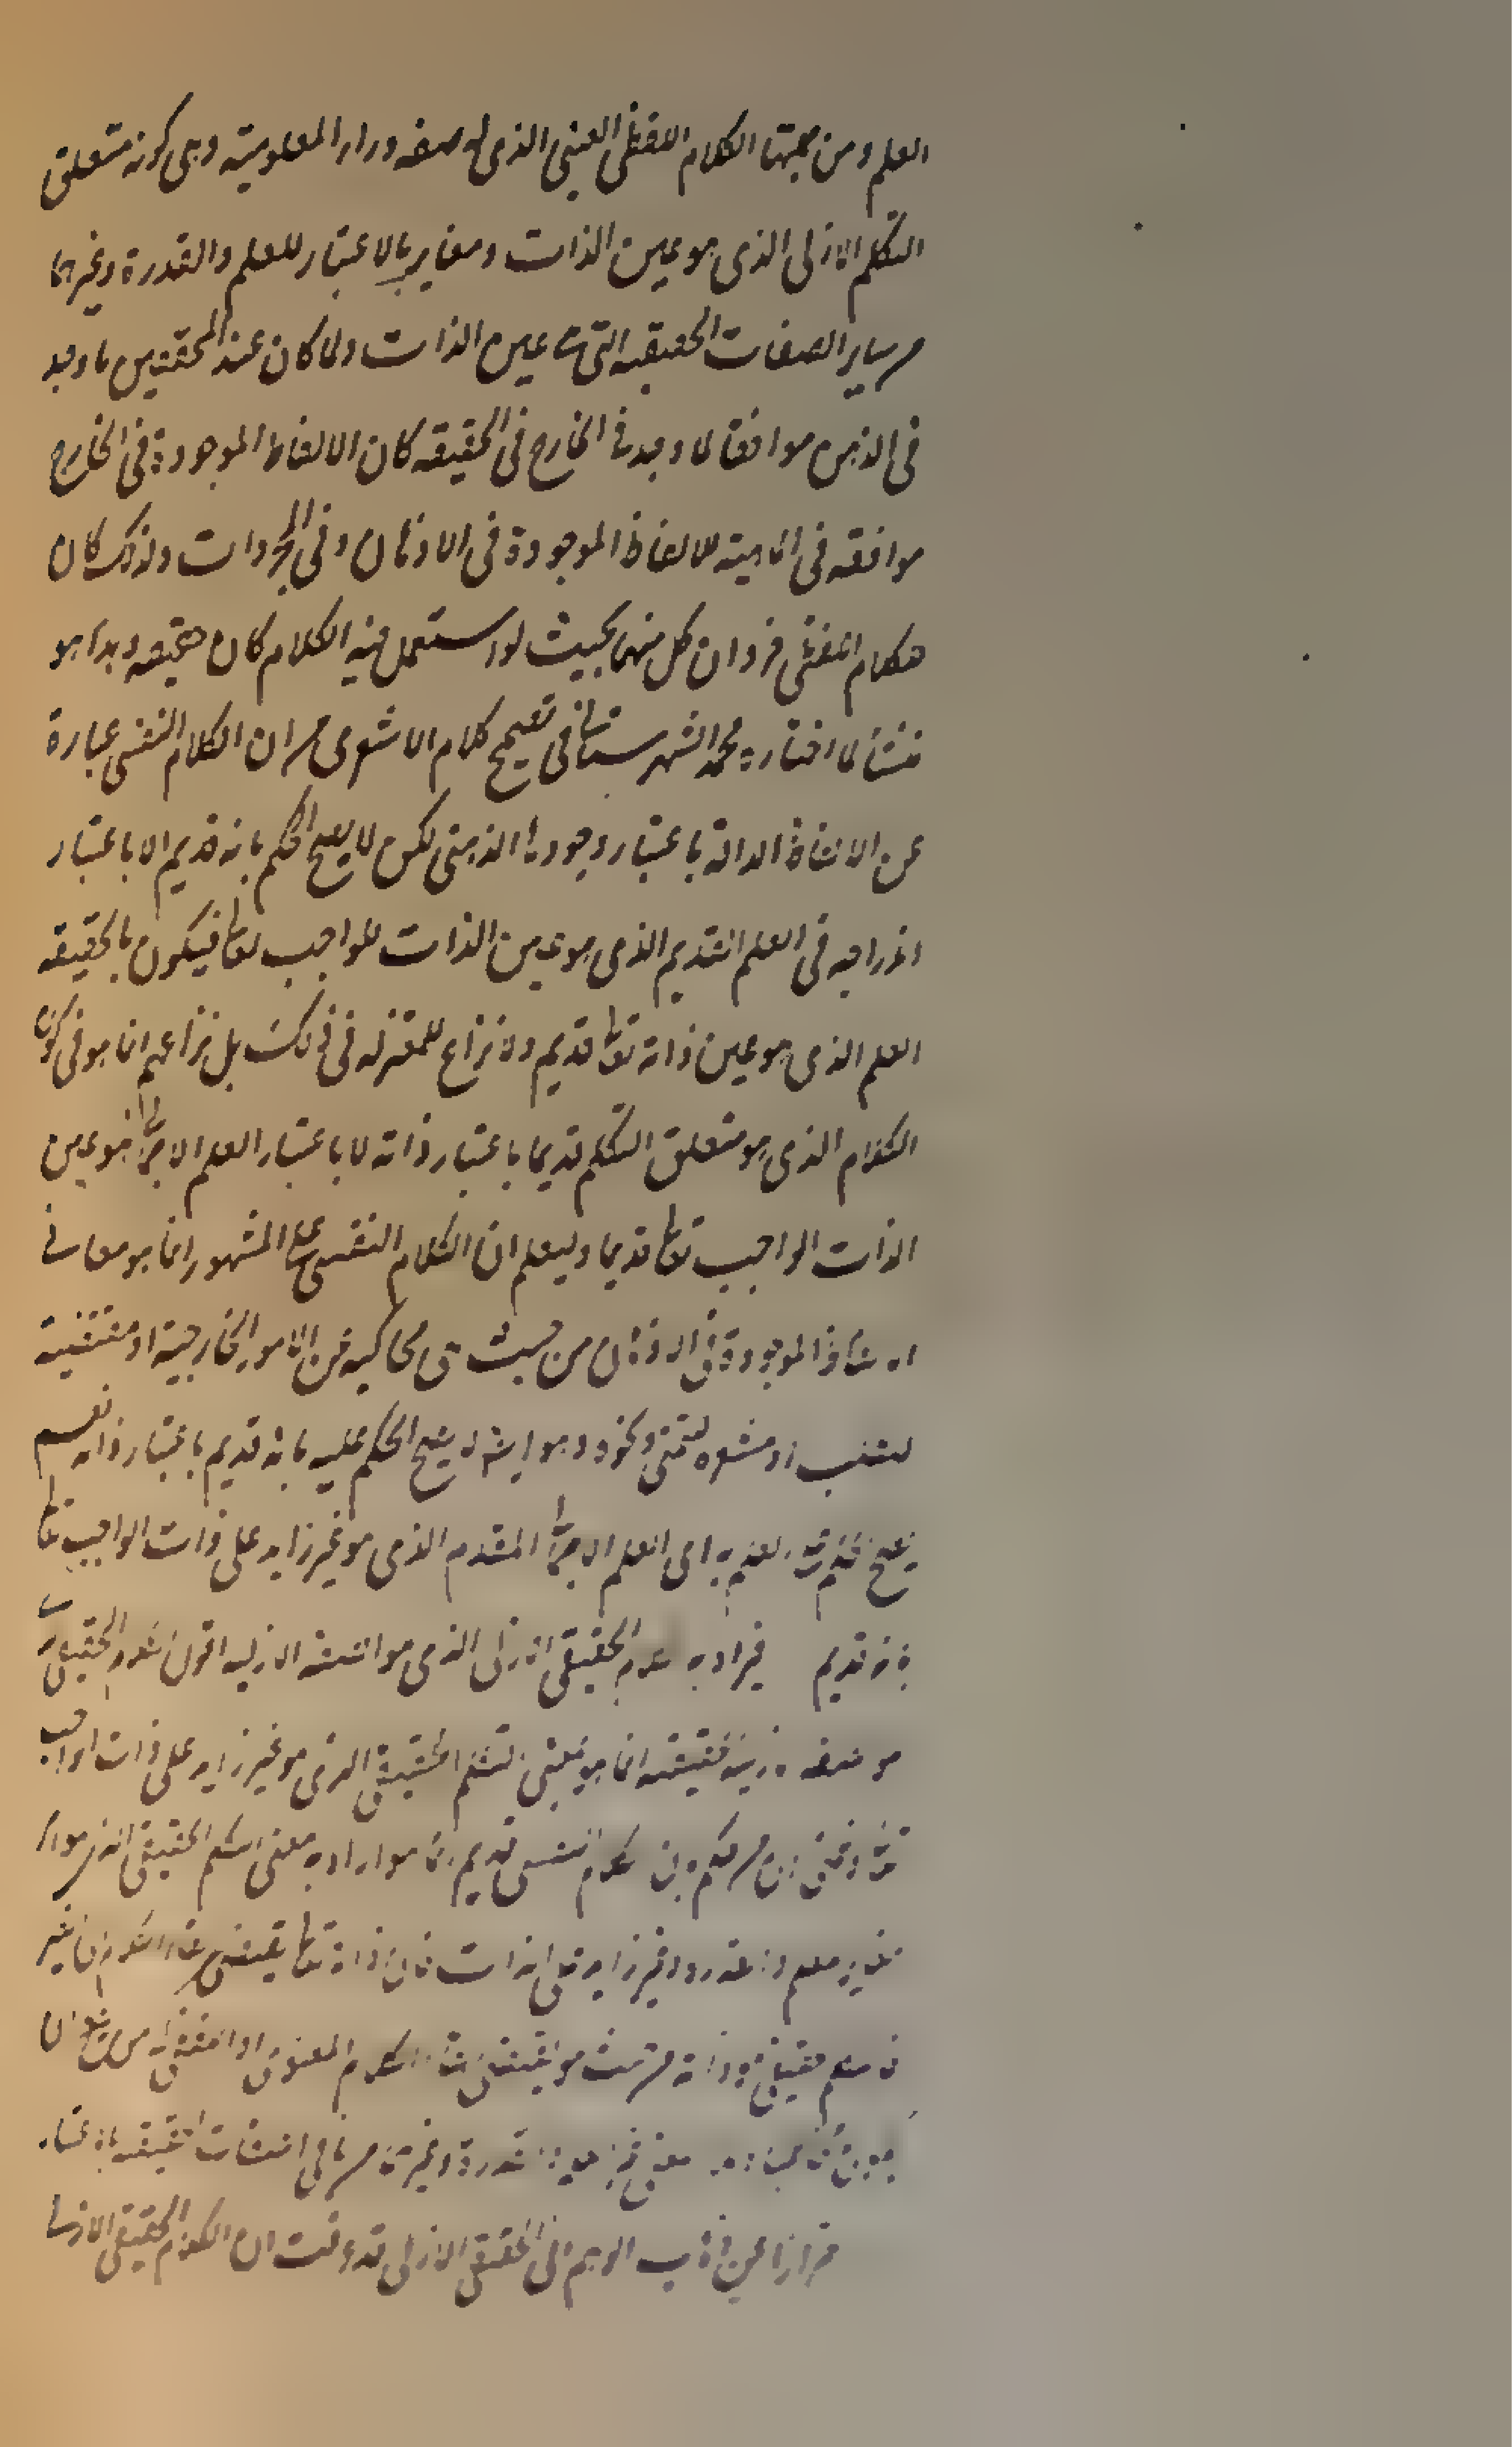 العلم ومن جهتها الكلام اللفظي العيني الذي له صفه وراء المعلومية وهي كونه متعلق
التكلم الازلي الذي هو عين الذات ومغاير بالاعتبار للعلم والقدرة وغيرهما
من ساير الصفات الحقيقيه التي هي عين الذات ولما كان عند المحققين ما وجد
في الذهن موافقا لما وجد في الخارج في الحقيقه كان الالفاظ الموجودة في الخارج
موافقه في الماهية للالفاظ الموجودة في الاذهان وفي المجردات ولذلك كان
للكلام اللفظي فردان كل منهما بحيث لو استعمل فيه الكلام كان حقيقه وهذا هو
منشأ لما اختاره محمد الشهرستاني في تصحيح كلام الاشعري من ان الكلام النفسي عبارة
عن الالفاظ الدالة باعتبار وجودها الذهني لكن لا يصح الحكم بانه قديم الا باعتبار
اندراجه في العلم القديم الذي هو عين الذات للواجب تعالى فيكون بالحقيقه
العلم الذي هو عين ذاته تعالى قديم ولا نزاع للمعتزله في ذلك بل نزاعهم انما هو في كون
الكلام الذي هو متعلق التكلم قديما باعتبار ذاته لا باعتبار العلم الاجمالي هو عين
الذات الواجب تعالى قديما وليعلم ان الكلام النفسي على المشهور انما هو معاني
الالفاظ الموجودة في الاذهان من حيث هي محاكيه عن الامور الخارجية او مقتضية
للطلب او مشعره للتمني ونحوه وهو ايضا لا يصح الحكم عليه بانه قديم باعتبار ذاته نعم
يصح باعتبار العلم به اي العلم الاجمالي المقدم الذي هو غير زايد على ذات الواجب تعالى
بانه قديم فيراد به الكلام الحقيقي الازلي الذي هو الصفة الازليه اقول الكلام الحقيقي
هو صفه ازلية حقيقته انما هو بمعنى التكلم الحقيقي الذي هو غير زايد على ذات الواجب
تعالى من حكم بان الكلام النفسي قديم انما هو اراد به معنى التكلم الحقيقي الذي هو
مغاير للعلم والقدره وغير زايد على الذات فان ذاته تعالى يقتضي القاء الكلام الى الغير
فالتكلم حقيقي ذاته من حيث هو يقتضي القاء الكلام المعنوي او اللفظي
معنى مغاير القدرة وغيرها من باقي الصفات الحقيقيه بالاعتبار
احترازا عن ذهاب الوهم الى الحقيقي الازلي قد عرفت ان الكلام الحقيقي الازلي